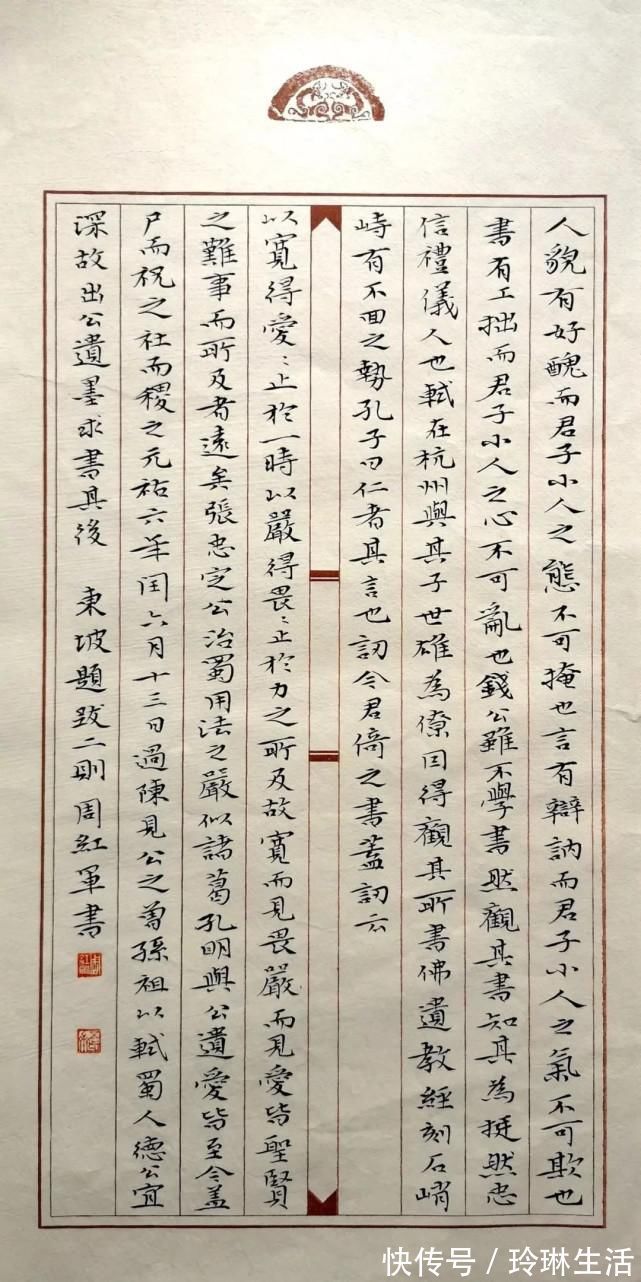 人貌有好醜而君子小人之態不可掩也言有辯訥而君子小人之氣不可欺也
書有工拙而君子小人之心不可亂也錢公雖不學書然觀其書知其為挺然忠
信禮儀人也軾在杭州與其子世雄為僚因得觀其所書佛遺教經刻石峭
峙有不回之勢孔子曰仁者其言也訒今君倚之書蓋訒云
以寬得愛〻止於一時以嚴得畏〻止於力之所及故寬而見畏嚴而見愛皆聖賢
之難事而所及者遠矣張忠定公治蜀用法之嚴似諸葛孔明與公遺愛皆至今蓋
尸而祝之社而稷之元祐六年閏六月十三日過陳見公之曾孫祖以軾蜀人德公宜
深故出公遺墨求書其後 東坡題跋二則 周紅軍書
快传号／玲琳生活